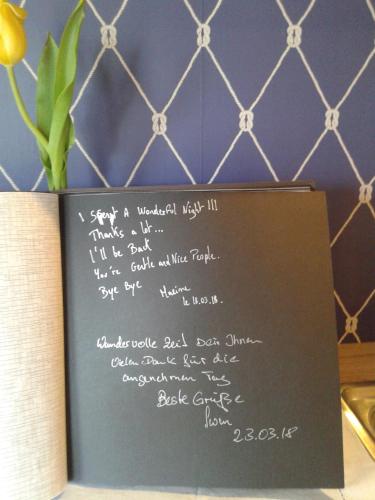 I Spent A Wonderful Night !!!
Thanks a lot...
I'll be Back
You're Gentle and Nice People.
Bye Bye
Maxime
le 18.03.18.
Wundervolle Zeit bei Ihnen
Vielen Dank für die
angenehmen Tag
Beste Grüße
23.03.18